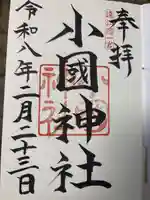 奉拝
小國神社
令和八年二月二十三日